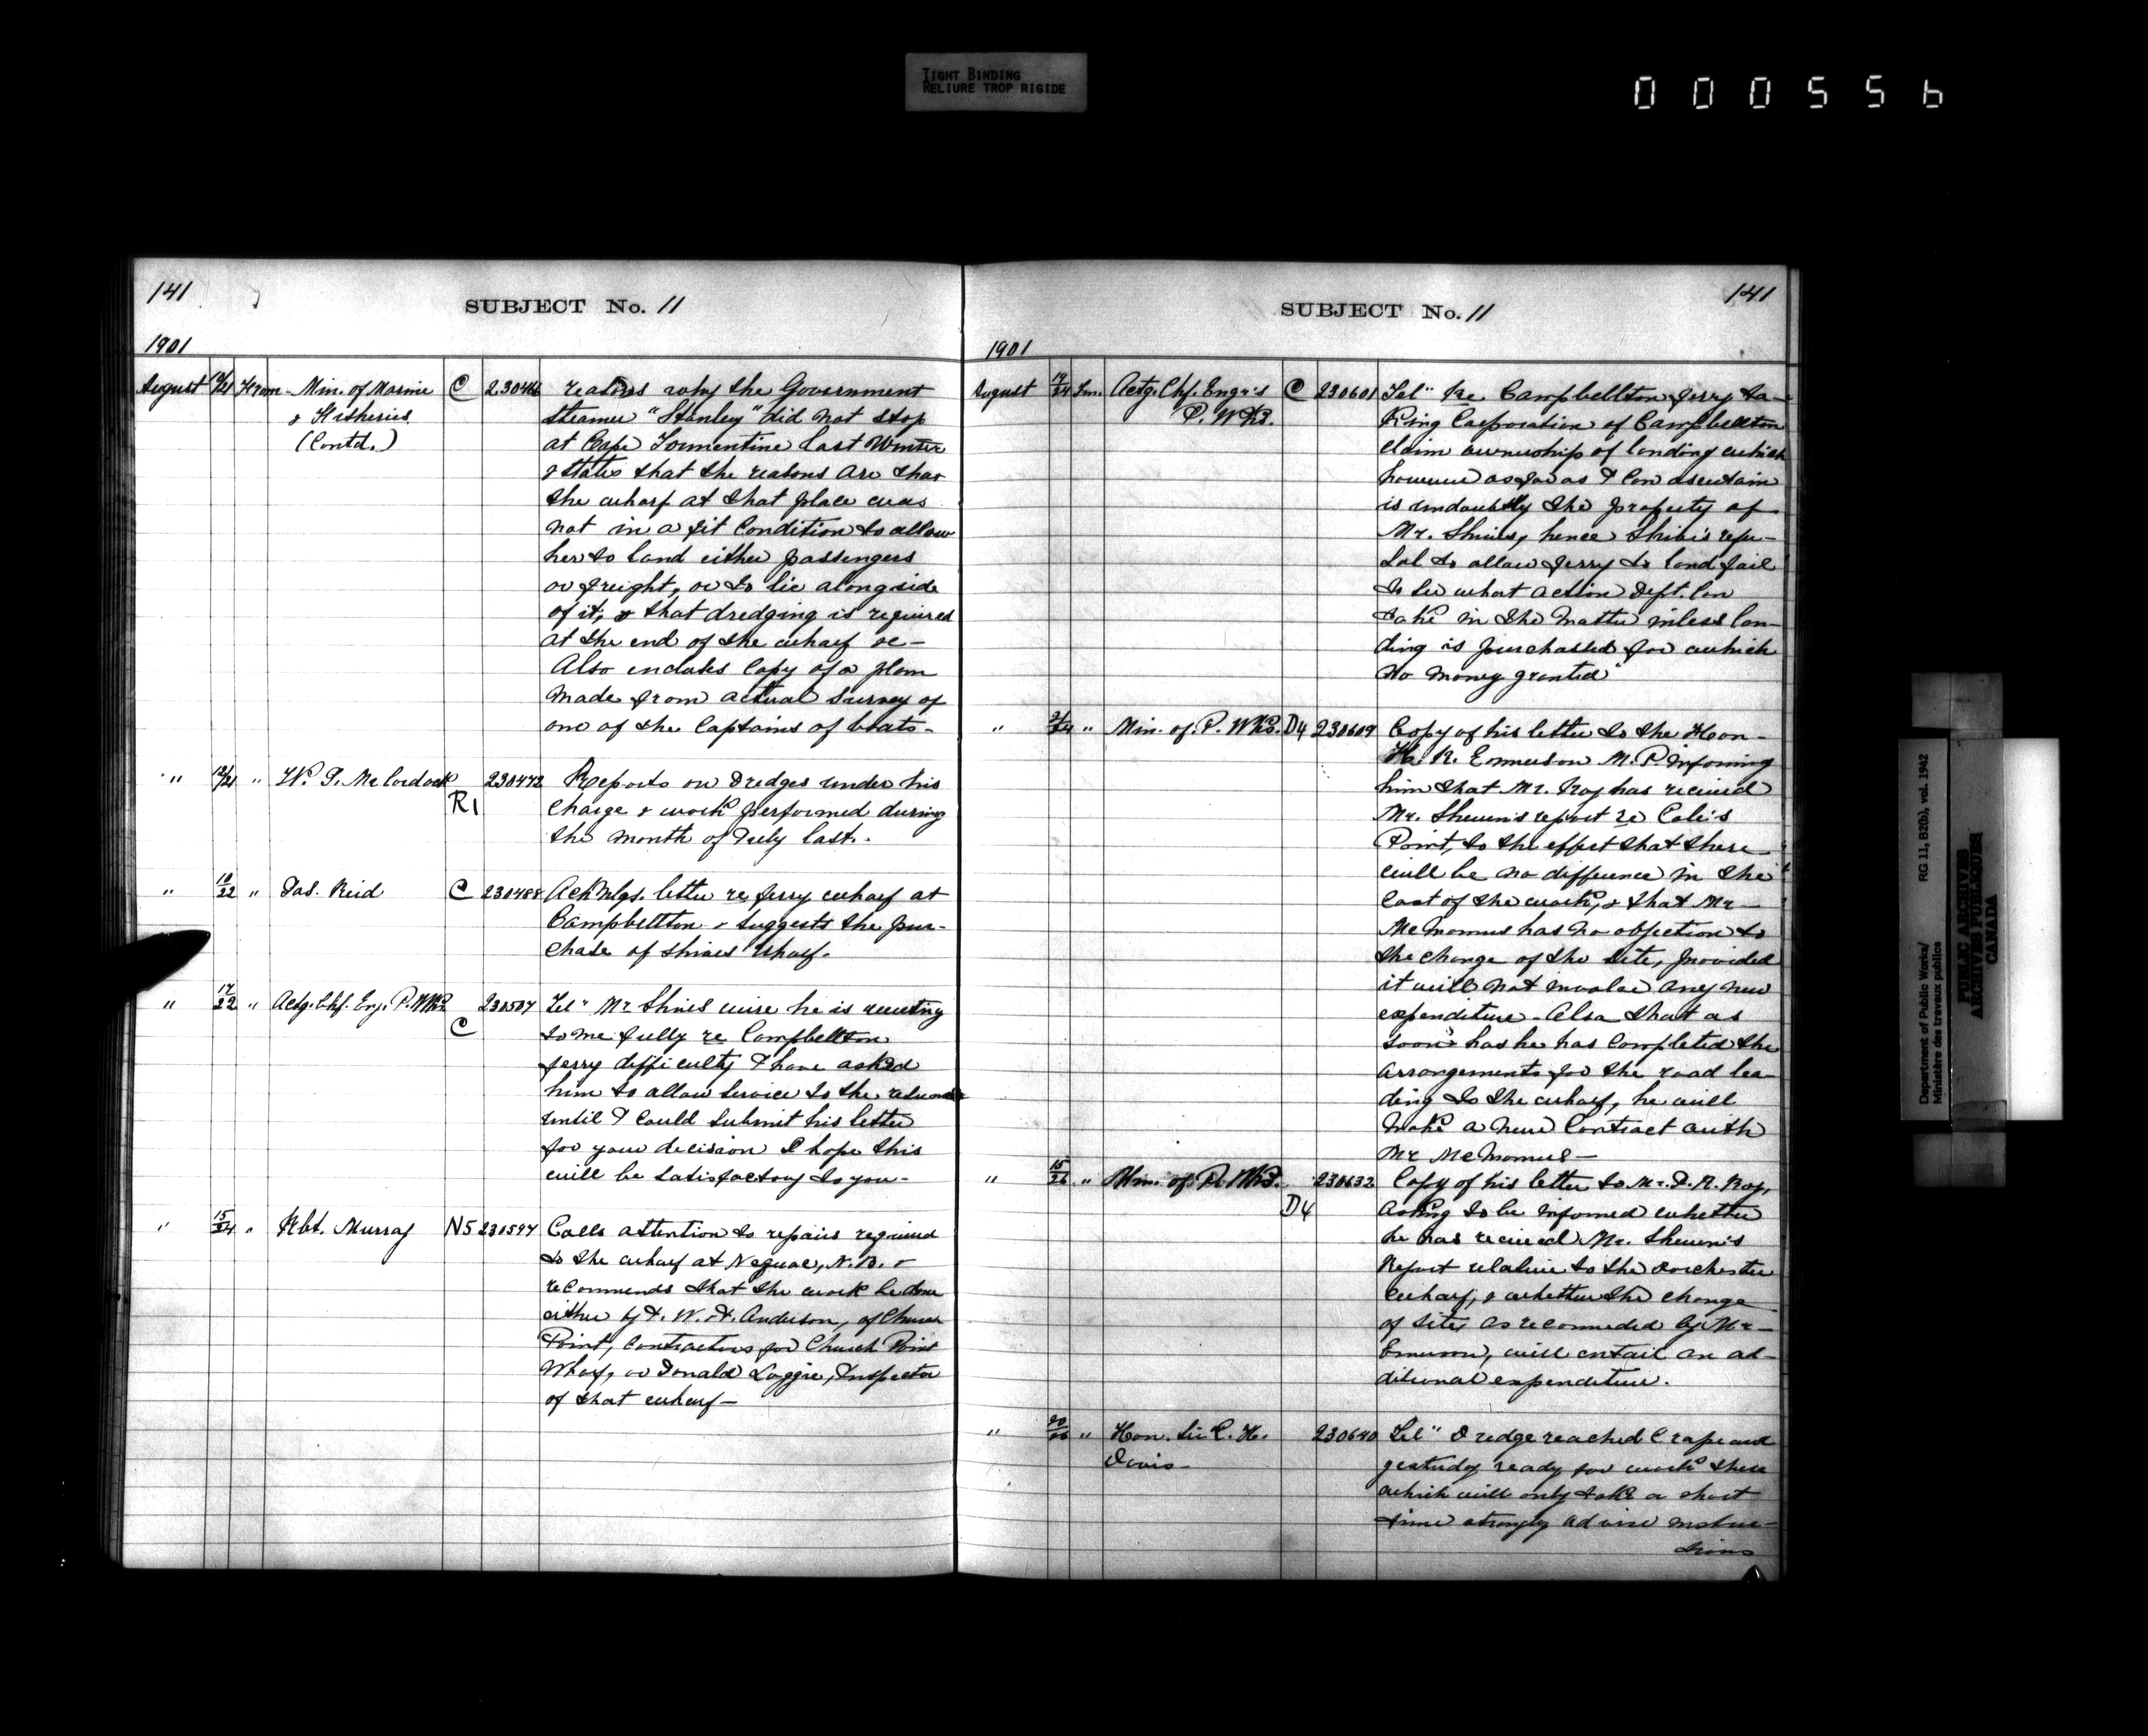 TIGHT BINDING
RELIURE TROP RIGIDE
000556
141
SUBJECT No. 11
1901
August From Min. of Marine C 230416 reasons why the Government
& Fisheries steamer "Stanley" did not stop
(Contd.) at Cape Tormentine last Winter
& states that the reasons are that
the wharf at that place was
not in a fit condition to allow
her to land either passengers
or freight, or to lie alongside
of it, & that dredging is required
at the end of the wharf &c-
Also encloses copy of a plan
made from actual survey of
one of the Captains of boats-
" " W. J. McCordock R1 230472 Reports on dredges under his
charge & work performed during
the month of July last.-
" 18/22 " Jas. Reid C 230488 Acknlgs. letter re ferry wharf at
Campbellton & suggests the pur-
chase of Shives Wharf.
" 17/22 " Actg. Chf. Eng. P. Wks. C 230507 Tel" Mr Shives wire he is writing
to me fully re Campbellton
ferry difficulty I have asked
him to allow service to the
until I could submit his letter
for your decision I hope this
will be satisfactory to you-
" 15/24 " Rbt. Murray N5 230597 Calls attention to repairs required
to the wharf at Neguac, N.B. &
recommends that the work be done
either by W. H. Anderson, of Church
Point, contractors for Church Point
Wharf, or Donald Loggie, Inspector
of that wharf-
141
SUBJECT No. 11
1901
August 19/24 Fm. Actg. Chf. Engr's C 230601 Tel" Re. Campbellton ferry ta-
P. Wks. King Corporation of Campbellton
claim ownership of landing which
however as far as I can ascertain
is undoubtly the property of
Mr. Shives, hence Shive's refu-
sal to allow ferry to land fail
to see what action Dept. can
take in the matter unless lan-
ding is purchased for which
no money granted"
" " Min. of P. Wks. D4 230609 Copy of his letter to the Hon-
H. R. Emmerson M.P. informing
him that Mr. Roy has received
Mr. Shewen's report re Cole's
Point, to the effect that there
will be no difference in the
cost of the work, & that Mr-
McManus has no objection to
the change of the site, provided
it will not involve any new
expenditure - Also that as
soon has he has completed the
arrangements for the road lea-
ding to the wharf, he will
make a new contract with
Mr McManus-
" 15/26 " Min. of P. Wks. D4 230632 Copy of his letter to Mr. J. R. Roy,
asking to be informed whether
he has received Mr. Shewen's
Report relative to the Dorchester
wharf, & whether the change
of site, as recommeded by Mr-
Emerson, will entail an ad-
ditional expenditure.
" " Hon. Sir L. H. 230640 Tel" Dredge reached Crapaud
Davis- yesterday ready for work there
which will only take a short
time strongly advise instruc-
tions
Department of Public Works/ RG 11, B2(b), vol. 1942
Ministère des travaux publics
PUBLIC ARCHIVES
ARCHIVES PUBLIQUES
CANADA